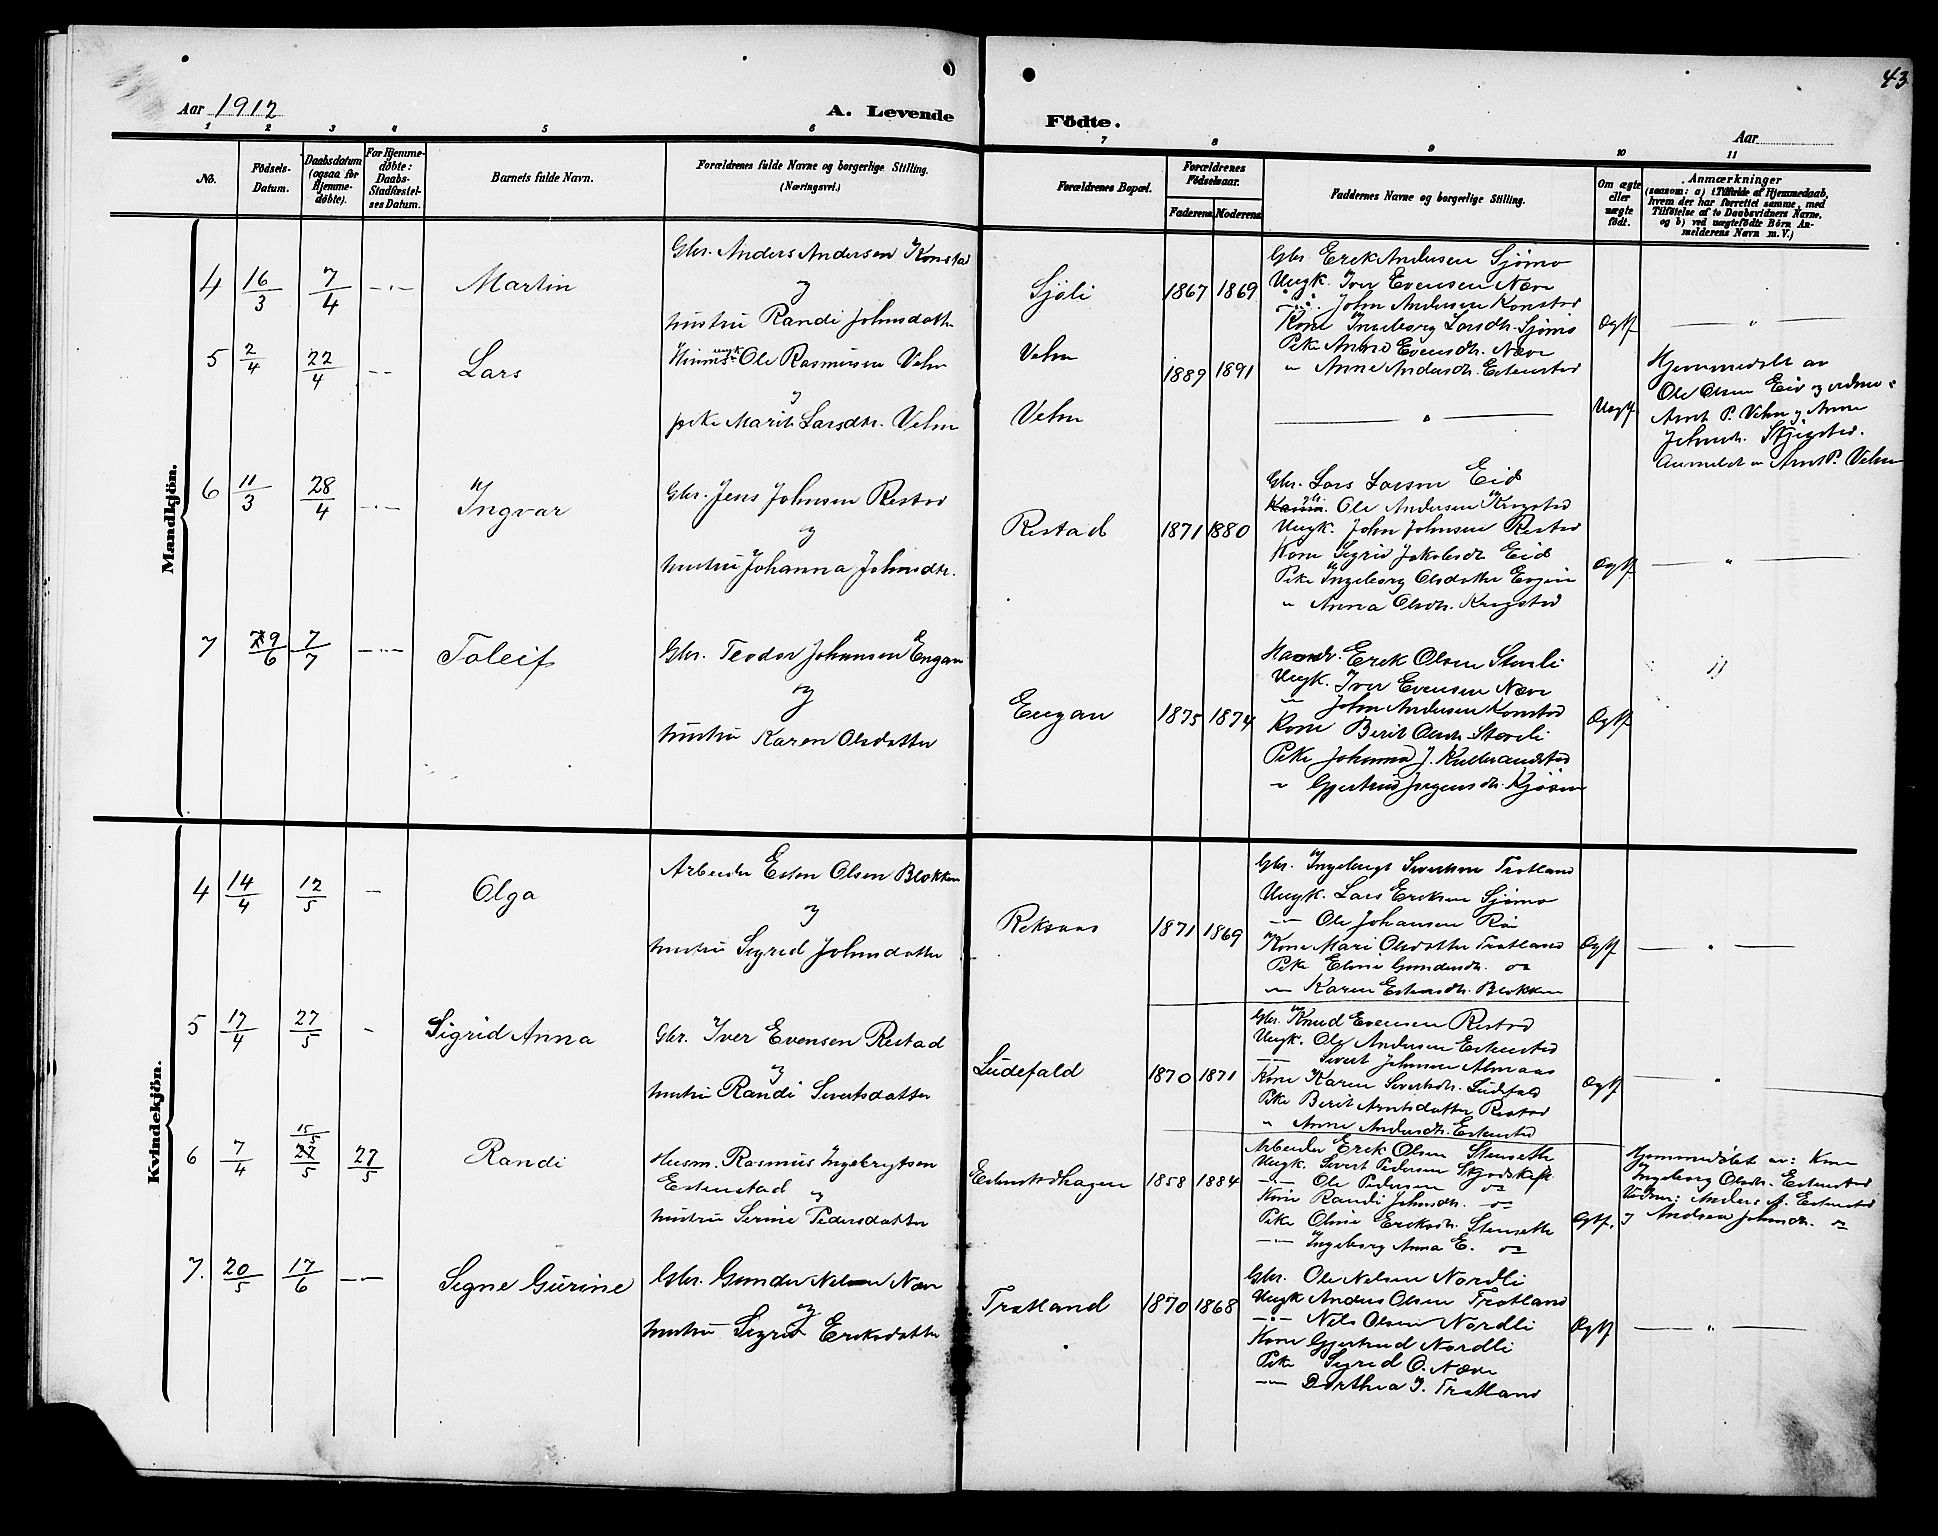 43
Aar 1912
A. Levende Födte.
Aar
1 2 3 4 5 6 7 8 9 10 11
No.
Födsels-Datum.
Daabsdatum (ogsaa for Hjemme-döbte).
For Hjemme-døbte: Daabs-Stadfæstel-ses Datum.
Barnets fulde Navn.
Forældrenes fulde Navne og borgerlige Stilling. (Næringsvei.)
Forældrenes Bopæl.
Forældrenes Födselsaar.
Faderens Moderens
Faddernes Navne og borgerlige Stilling.
Om ægte eller uægte født.
Anmærkninger
(saasom: a) i Tilfælde af Hjemmedaab,
hvem der har forrettet samme, med
Tilføielse af to Daabsvidners Navne,
og b) ved uægtefødte Börn An-
melderens Navn m. V.)
Mandkjön.
4 16/3 7/4 Martin
Gbr. Anders Andersen Konstad
og
hustru Randi Johnsdatter
Sjøli 1867 1869
Gbr Erek Andersen Sjømo
Ungk. Iver Evensen Næve
John Andersen Konstad
Kone Ingeborg Larsdtr. Sjømo
Pike Anne Evensdtr. Næve
" Anne Andersdtr. Estenstad
Ægtf "
5 2/4 22/4 Lars
ungk Ole Rasmusen Velen
og
pike Marit Larsdtr. Velen
Velen
Velen
1889 1891
"
Uegtf
Hjemmedøbt av
Ole Olsen Eid og vidner
Arnt P. Velen og Anne
Johnsdr. Skjegstad.
Anmeldt av Arnt P. Velen
6 11/3 28/4 Ingvar
Gbr. Jens Johnsen Restad
og
hustru Johanna Johnsdtr.
Restad 1871 1880
Gbr. Lars Larsen Eid
Ole Andersen Krogstad
Ungk. John Johnsen Restad
Kone Sigrid Jakobsdtr Eid
Pike Ingeborg Olsdatter Engen
" Anna Olsdtr. Krogstad
Ægtf "
7 29/6 7/7 Toleif
Gbr. Teodor Johansen Engan
og
hustru Karen Olsdatter
Engan 1875 1874
Erek Olsen Storli
Ungk. Iver Evensen Næve
" John Andersen Konstad
Kone Berit Olsdtr. Storli
Pike Johanna J. Kulbrandstad
" Gjertrud Jørgensdtr. Kjøsen
Ægtf "
Kvindekjön.
4 14/4 12/5 Olga
Arbeider Esten Olsen Blokken
og
hustru Sigrid Johnsdatter
Reksaas 1871 1869
Gbr. Ingebrigt Sivertsen Trotland
Ungk. Lars Ereksen Sjømo
Ole Johansen Rø
Kone Mari Olsdatter Trotland
Pike Eline Gundersdr. "
" Karen Estensdtr. Blokken
Ægtf "
5 17/4 27/5 Sigrid Anna
Gbr. Iver Evensen Restad
og
hustru Randi Sivertsdatter
Ludefald 1870 1871
Gbr. Knud Evensen Restad
Ungk. Ole Andersen Estenstad
Sivert Johnsen Almaas
Kone Karen Sivertsdtr. Ludefald
Pike Berit Arntsdatter Restad
" Anne Andersdtr. Estenstad
Ægtf "
6 7/4 15/5 27/5 27/5 Randi
Husm. Rasmus Ingebrigtsen
Estenstad og
hustru Serine Pedersdatter
Estenstadhagen 1858 1884
Arbeider Erek Olsen Stenseth
Ungk. Sivert Pedersen Skjødskift
Ole Pedersen
Kone Randi Johnsdtr.
Pike Oline Ereksdtr. Stenseth
Ingeborg Anna E.
Ægtf.
Hjemmedøbt av: Kone
Ingeborg Olsdtr. Estenstad
Vidner: Anders A. Estenstad
og Andrea Johnsdr.
7. 20/5 17/6 Signe Gurine
Gbr. Gunder Nelsen Næve
og
hustru Sigrid Ereksdatter
Trotland 1870 1868
Gbr. Ole Nelsen Nordli
Ungk Anders Olsen Trotland
Nels Olsen Nordli
Kone Gjertrud Nordli
Pike Sigrid O. Næve
Dorthea J. Trotland
Ægtf "